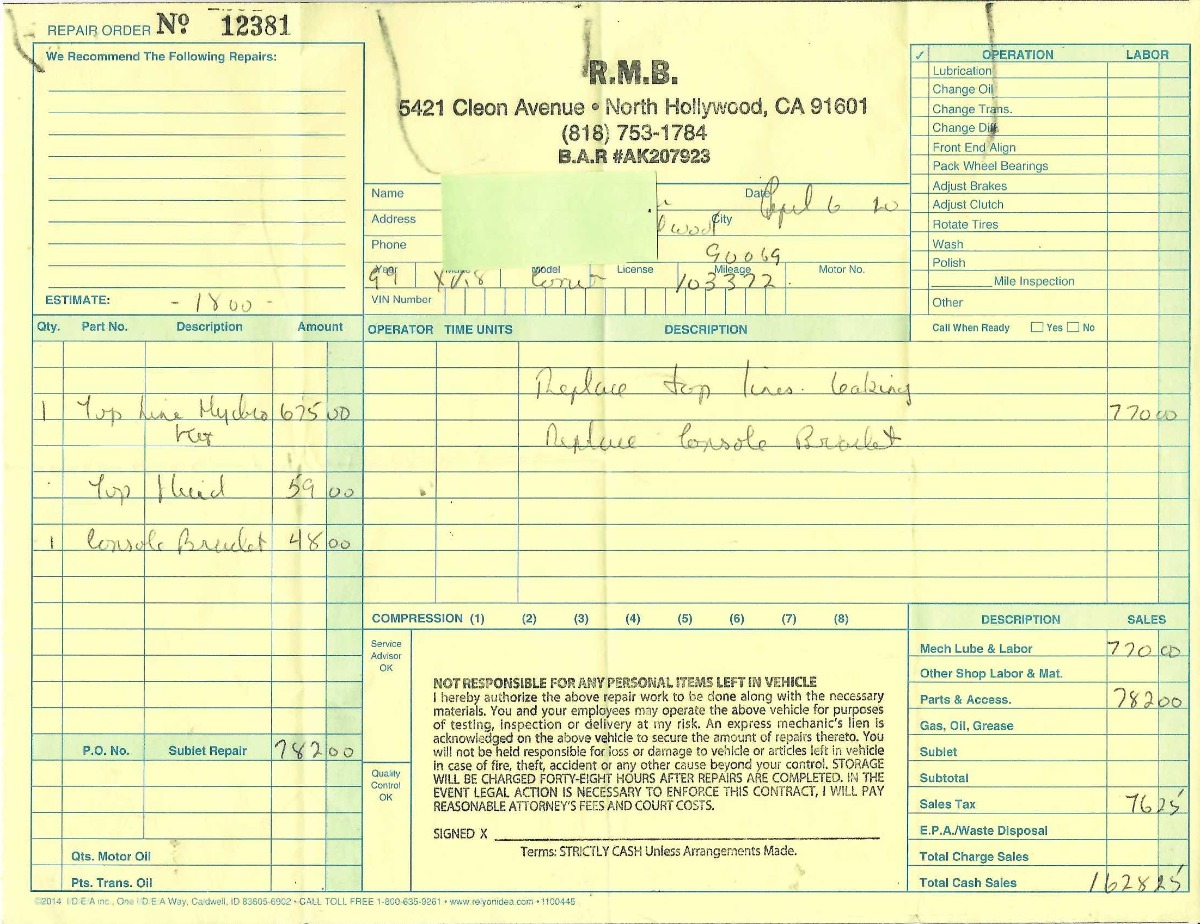 REPAIR ORDER Nº 12381
We Recommend The Following Repairs:
ESTIMATE: - 1800 -
R.M.B.
5421 Cleon Avenue • North Hollywood, CA 91601
(818) 753-1784
B.A.R #AK207923
Name Date April 6 20
Address City
Phone 90069
Year Make Model License Mileage Motor No.
99 XK8 Convt 103372
VIN Number
✓ OPERATION LABOR
Lubrication
Change Oil
Change Trans.
Change Diff.
Front End Align
Pack Wheel Bearings
Adjust Brakes
Adjust Clutch
Rotate Tires
Wash
Polish
Mile Inspection
Other
Call When Ready Yes No
Qty. Part No. Description Amount
1 Top Line Hydro 675 00
Top Fluid 59 00
1 Console Bracket 48 00
P.O. No. Sublet Repair 782 00
Qts. Motor Oil
Pts. Trans. Oil
OPERATOR TIME UNITS DESCRIPTION
Replace top lines. leaking
770 00
Replace Console Bracket
COMPRESSION (1) (2) (3) (4) (5) (6) (7) (8)
Service
Advisor
OK
Quality
Control
OK
NOT RESPONSIBLE FOR ANY PERSONAL ITEMS LEFT IN VEHICLE
I hereby authorize the above repair work to be done along with the necessary
materials. You and your employees may operate the above vehicle for purposes
of testing, inspection or delivery at my risk. An express mechanic's lien is
acknowledged on the above vehicle to secure the amount of repairs thereto. You
will not be held responsible for loss or damage to vehicle or articles left in vehicle
in case of fire, theft, accident or any other cause beyond your control. STORAGE
WILL BE CHARGED FORTY-EIGHT HOURS AFTER REPAIRS ARE COMPLETED. IN THE
EVENT LEGAL ACTION IS NECESSARY TO ENFORCE THIS CONTRACT, I WILL PAY
REASONABLE ATTORNEY'S FEES AND COURT COSTS.
SIGNED X
Terms: STRICTLY CASH Unless Arrangements Made.
DESCRIPTION SALES
Mech Lube & Labor 770 00
Other Shop Labor & Mat.
Parts & Access. 782 00
Gas, Oil, Grease
Sublet
Subtotal
Sales Tax 76 25
E.P.A./Waste Disposal
Total Charge Sales
Total Cash Sales 1628 25
©2014 I/D/E/A inc., One I/D/E/A Way, Caldwell, ID 83605-6902 • CALL TOLL FREE 1-800-635-9261 • www.relyonidea.com • 1100445